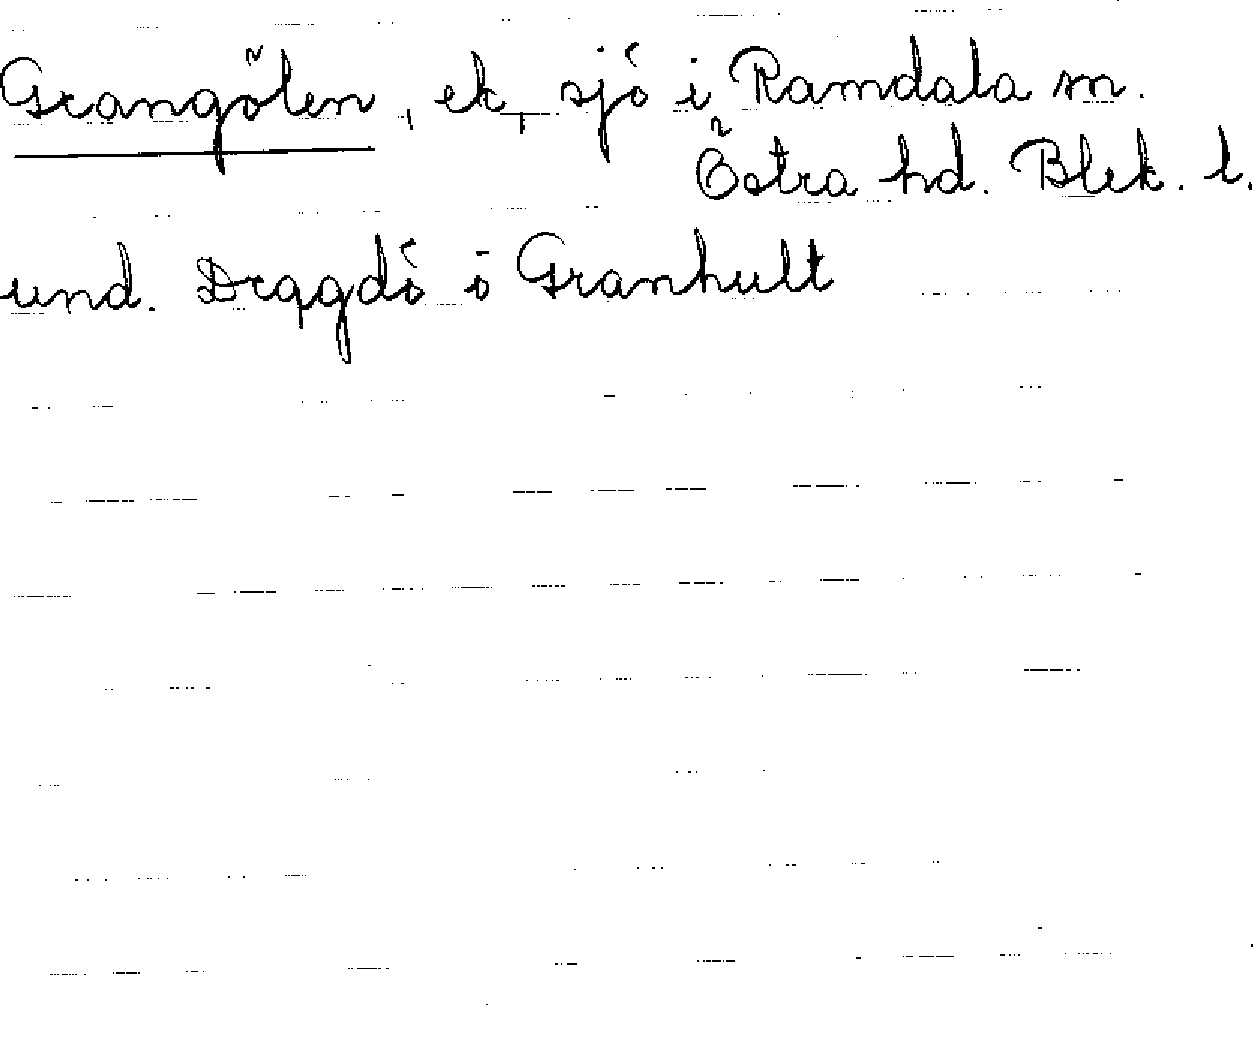 Grangölen, ek, sjö i Ramdala sn.
Östra hd. Blek. l.
und. Däggdö o Granhult